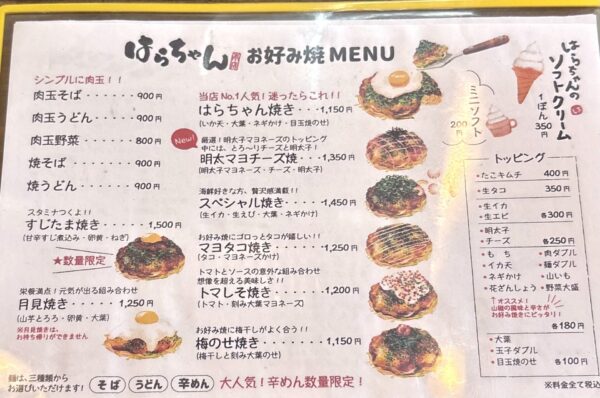 はらちゃん お好み焼 MENU
シンプルに肉玉！！
肉玉そば・・・・・・900円
肉玉うどん・・・・・900円
肉玉野菜・・・・・・800円
焼そば・・・・・・・900円
焼うどん・・・・・・900円
スタミナつくよ！！
すじたま焼き・・・・1,500円
(甘辛すじ煮込み・卵黄・ねぎ)
★数量限定
栄養満点！元気が出る組み合わせ
月見焼き・・・・・1,250円
(山芋とろろ・卵黄・大葉)
※月見焼きは、
お持ち帰りができません
当店No.1人気！迷ったらこれ！！
はらちゃん焼き・・・1,150円
(イカ天・大葉・ネギかけ・目玉のせ)
New!
厳選！明太子マヨネーズのトッピング
中には、とろ〜りチーズと明太子！
明太マヨチーズ焼・・・1,350円
(明太子マヨネーズ・チーズ・明太子)
海鮮好きな方、贅沢感満載！！
スペシャル焼き・・・・1,450円
(生イカ・生えび・大葉・ネギかけ)
お好み焼にゴロっとタコが嬉しい！！
マヨタコ焼き・・・・・1,250円
(タコ・マヨネーズかけ)
トマトとソースの意外な組み合わせ
想像を超える美味しさ！！
トマしそ焼き・・・・・1,200円
(トマト・刻み大葉マヨネーズ)
お好み焼に梅干しがよく合う！！
梅のせ焼き・・・・・・1,150円
(梅干しと刻み大葉のせ)
はらちゃんの
ソフトクリーム
1ぽん
350円
ミニソフト
200円
トッピング
・たこキムチ 400円
・生タコ 350円
・生イカ
・生エビ 各300円
・明太子
・チーズ 各250円
・もち ・肉ダブル
・イカ天 ・麺ダブル
・ネギかけ ・山いも
・花ざんしょう ・野菜大盛
↑オススメ！
山椒の風味と辛さが
お好み焼きにピッタリ！
各180円
・大葉
・玉子ダブル
・目玉のせ 各100円
※料金全て税込
麺は、三種類から
お選びいただけます！
そば うどん 辛めん
大人気！辛めん数量限定！